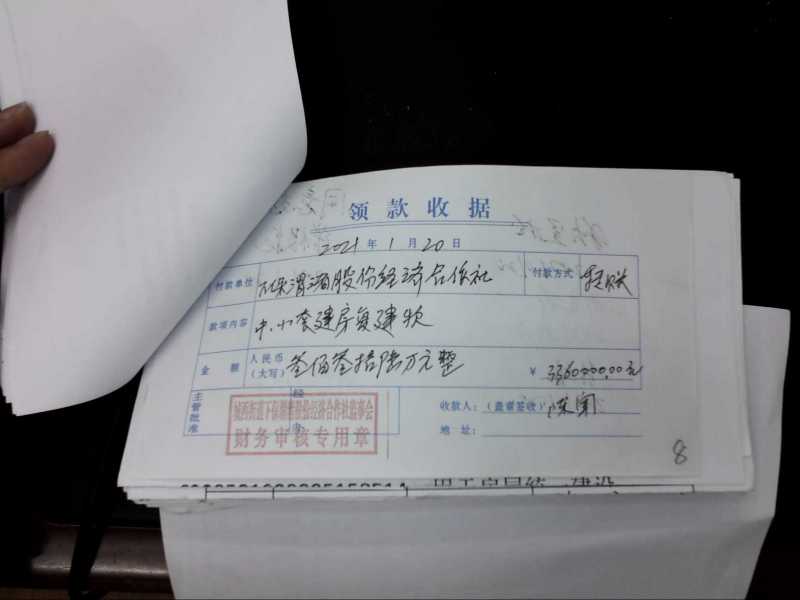 领款收据
2021年1月20日
付款单位 下保渭酒股份经济合作社 付款方式 转账
款项内容 中、小套建房复建款
金额 人民币(大写) 叁佰叁拾陆万元整 ¥ 3360000.00元
主管批准 经办 收款人:(盖章签收)
地址:
财务审核专用章
8